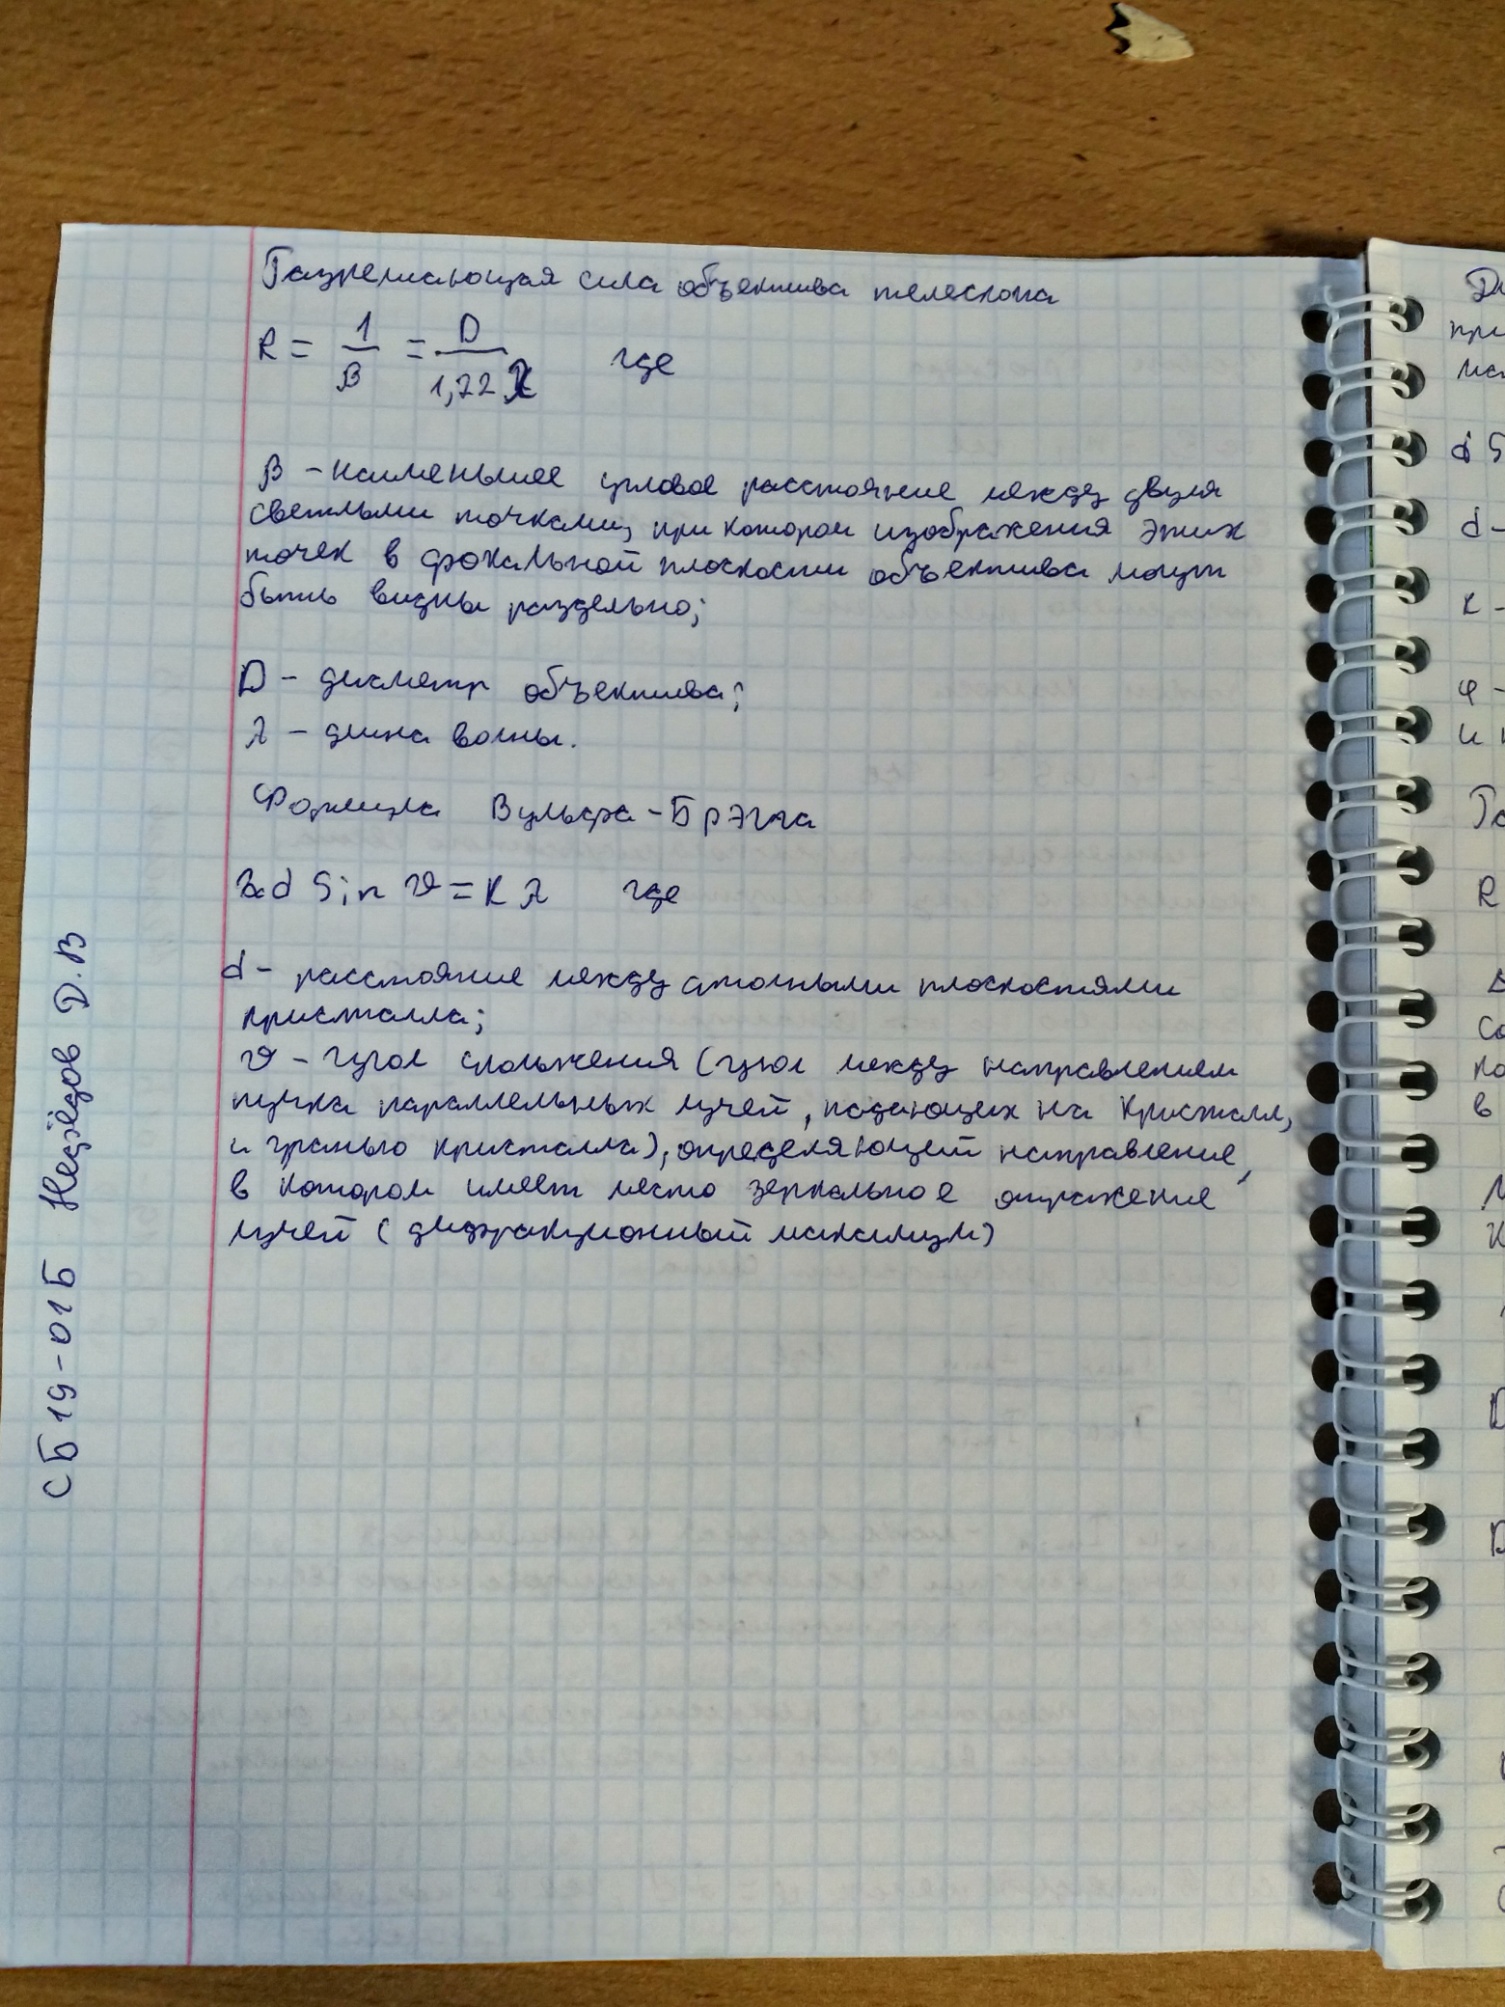 Разрешающая сила объектива телескопа
R = 1/β = D/1,22λ где
β – наименьшее угловое расстояние между двумя
светлыми точками, при котором изображения этих
точек в фокальной плоскости объектива могут
быть видны раздельно;
D – диаметр объектива;
λ – длина волны.
Формула Вульфа-Брэгга
2d Sin ϑ = K λ где
d – расстояние между атомными плоскостями
кристалла;
ϑ – угол скольжения (угол между направлением
пучка параллельных лучей, падающих на кристалл,
и гранью кристалла), определяющий направление,
в котором имеет место зеркальное отражение
лучей (дифракционный максимум)
СБ19-01Б Д.В
d
K -
φ -
R
в